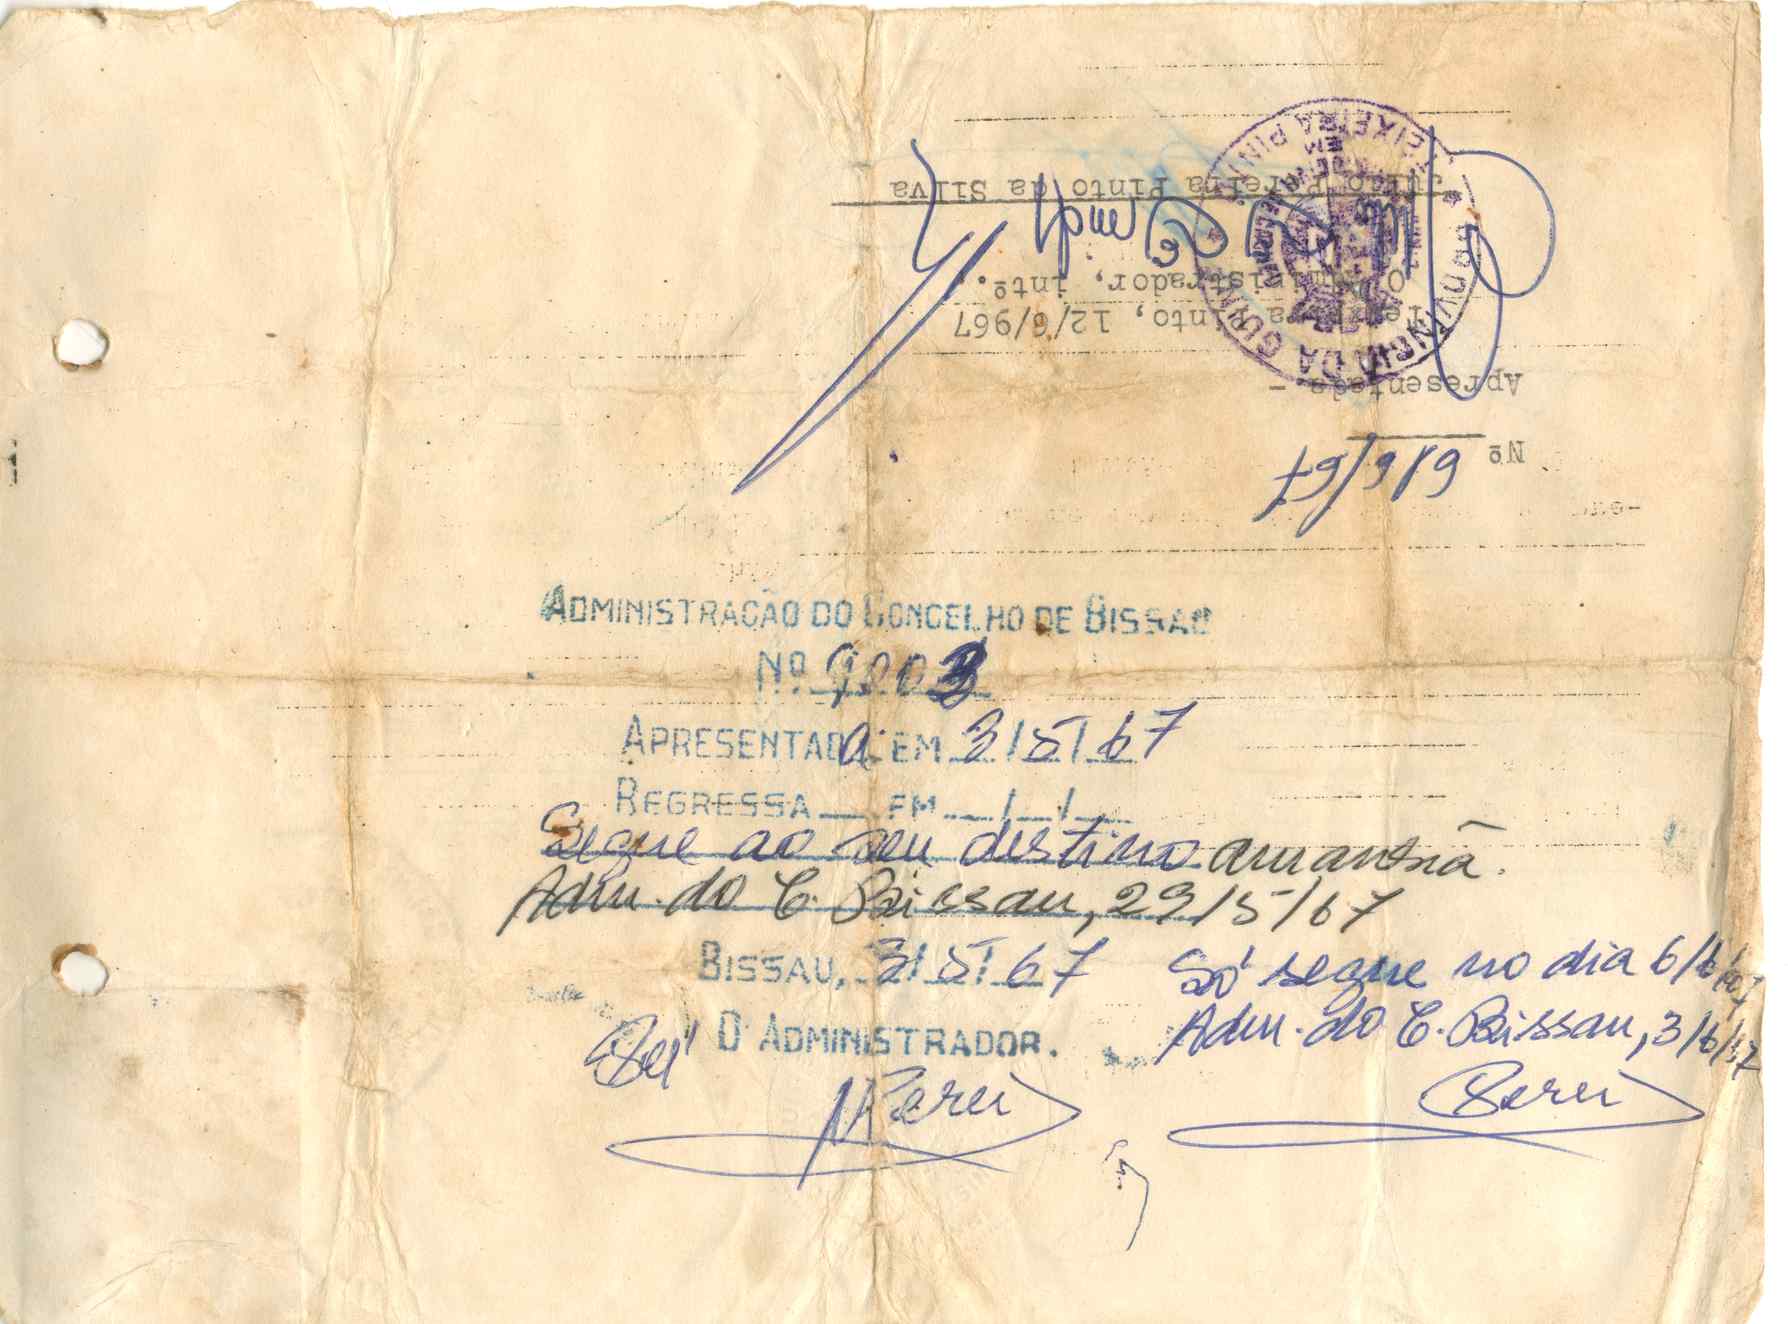 Nº 619/67
Apresentada -
Teixeira Pinto, 12/6/967
O Administrador, intº.
Júlio Preira Pinto da Silva
PROVINCIA DA GUINÉ
TEIXEIRA PINTO
ADMINISTRAÇÃO DO CONCELHO DE BISSAU
Nº 9003
APRESENTADA EM 3/5/67
REGRESSA EM / /
Segue ao seu destino amanhã.
Adm. do C. Bissau, 29/5/67
BISSAU, 3/5/67
O ADMINISTRADOR.
Só segue no dia 6/6/967
Adm. do C. Bissau, 3/6/67